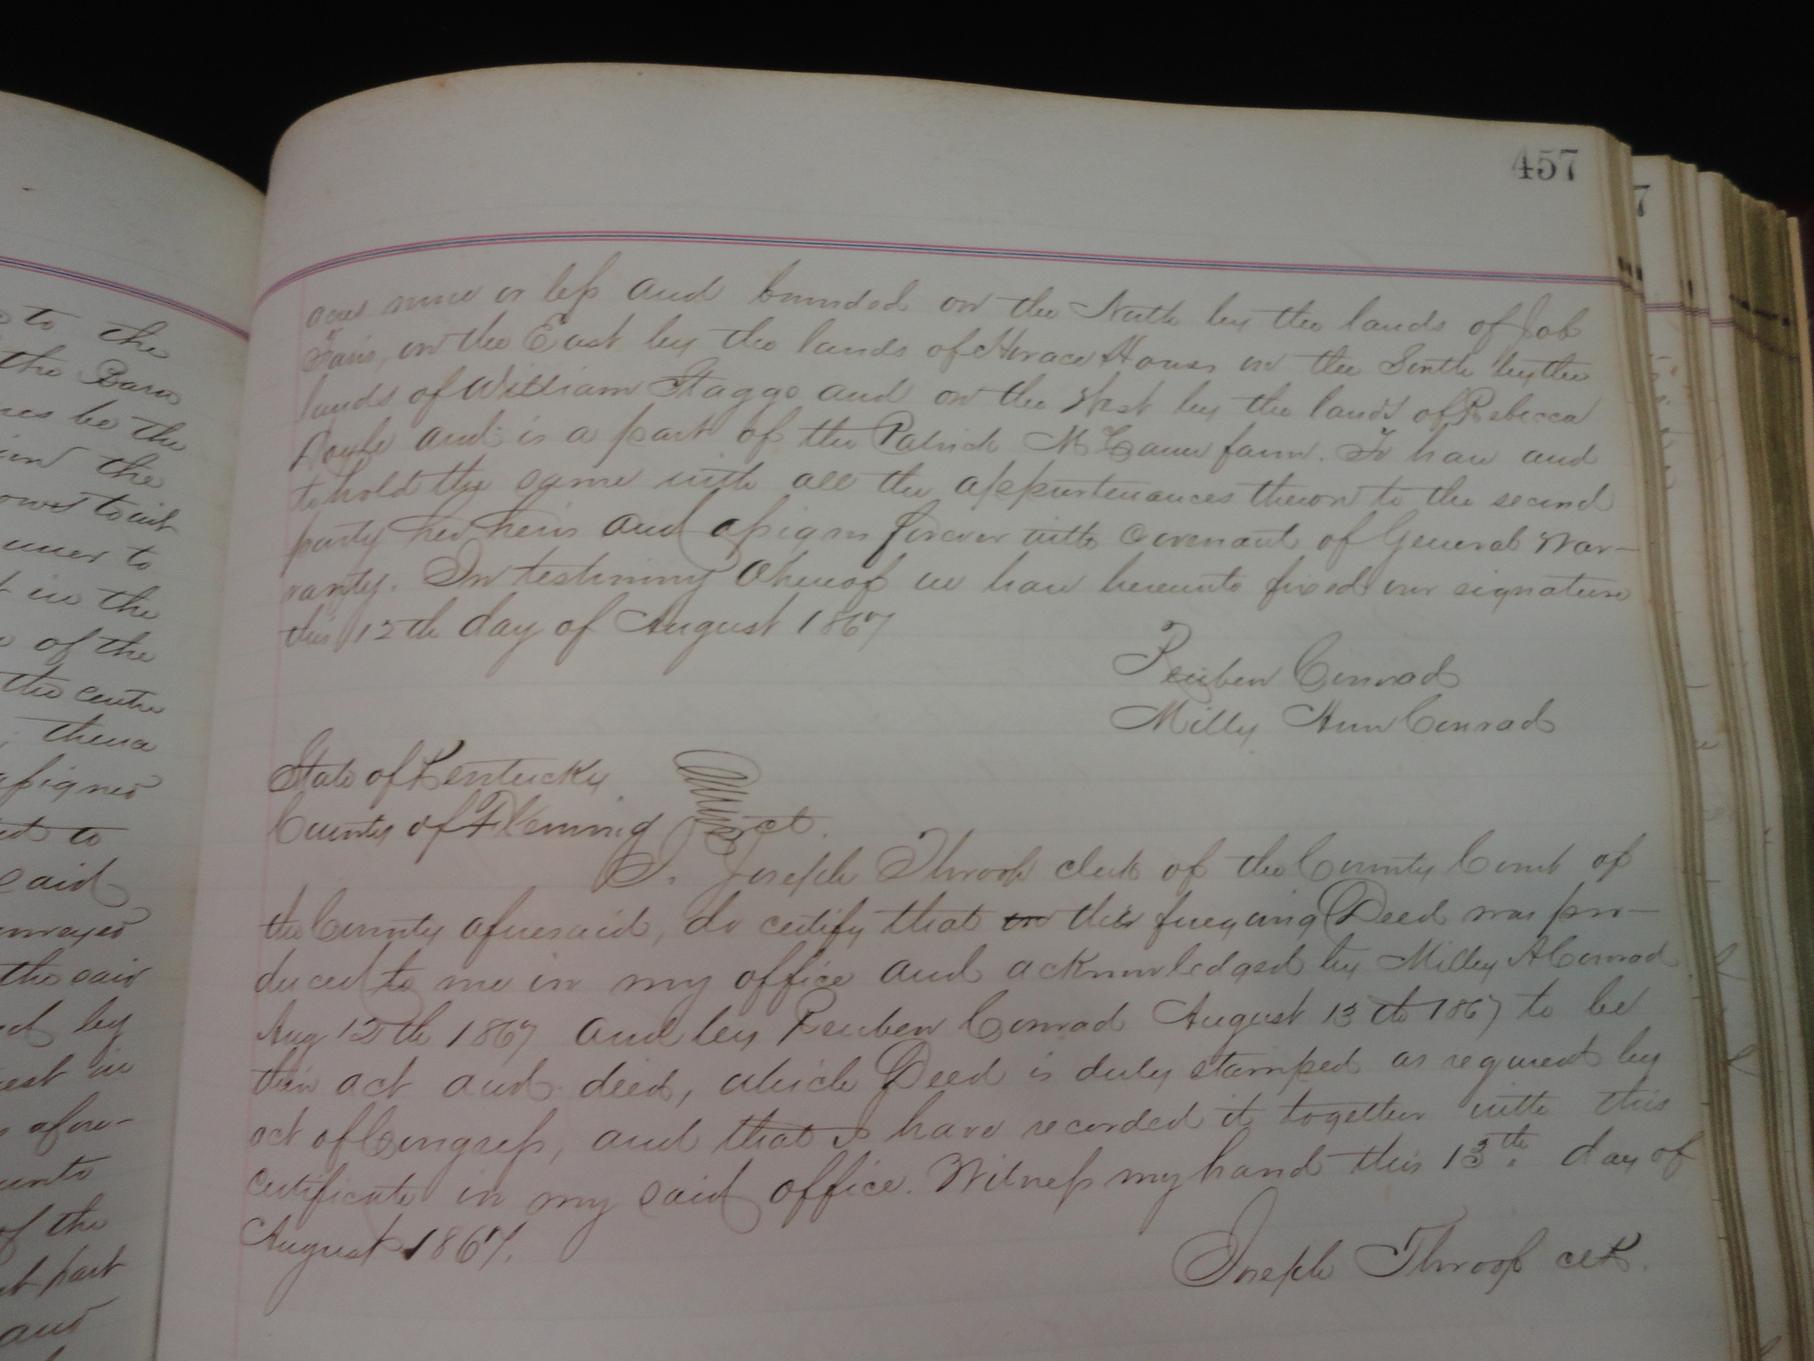 to the
the Barn
be the
in the
to wit
to
in the
of the
the centre
thence
assigned
to
said
conveyed
the said
by
in
afore-
unto
of the
part
and
457
7
acres more or less and bounded on the North by the lands of Job
Faris, on the East by the lands of Horace House on the South by the
lands of William Staggs and on the West by the lands of Rebecca
Doyle and is a part of the Patrick McCann farm. To have and
to hold the same with all the appurtenances thereon to the second
party her heirs and assigns forever with covenant of General War-
ranty. In testimony whereof we have hereunto fixed our signature
this 12th day of August 1867
Reuben Conrad
Milly Ann Conrad
State of Kentucky
County of Fleming Sct.
I. Joseph Throop clerk of the County Court of
the County aforesaid, do certify that on this foregoing Deed was pro-
duced to me in my office and acknowledged by Milley A Conrad
Aug 12th 1867 and by Reuben Conrad August 13th 1867 to be
their act and deed, which Deed is duly stamped as required by
act of Congress, and that I have recorded it together with this
certificate in my said office. Witness my hand this 13th. day of
August 1867.
Joseph Throop clk.